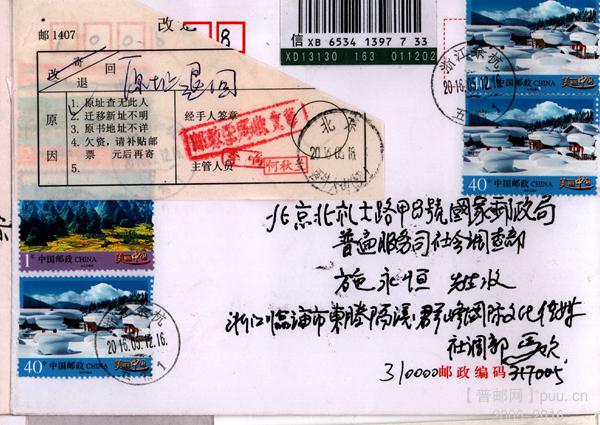 邮 1407
改退
8
信 XB 6534 1397 7 33
XD13130 163 011202
改 寄
退 回
原址退回
原因
1. 原址查无此人
2. 迁移新址不明
3. 原书地址不详
4. 欠资，请补贴邮
票 元后再寄
5.
经手人签章
主管人员
何秋
北京
2016.05.16.
浙江余杭
2016.05.12.16.
40分 中国邮政 CHINA 美丽中国
1元 中国邮政 CHINA 美丽中国
40分 中国邮政 CHINA 美丽中国
余杭
2016.05.12.16.
1
北京北礼士路甲8號國家郵政局
普遍服务司社会调查部
施永恒 先生收
浙江臨海市東塍 群峰國际文化传媒
社调部
310000 邮政编码 317005
【普邮网】puu.cn
2006-2016